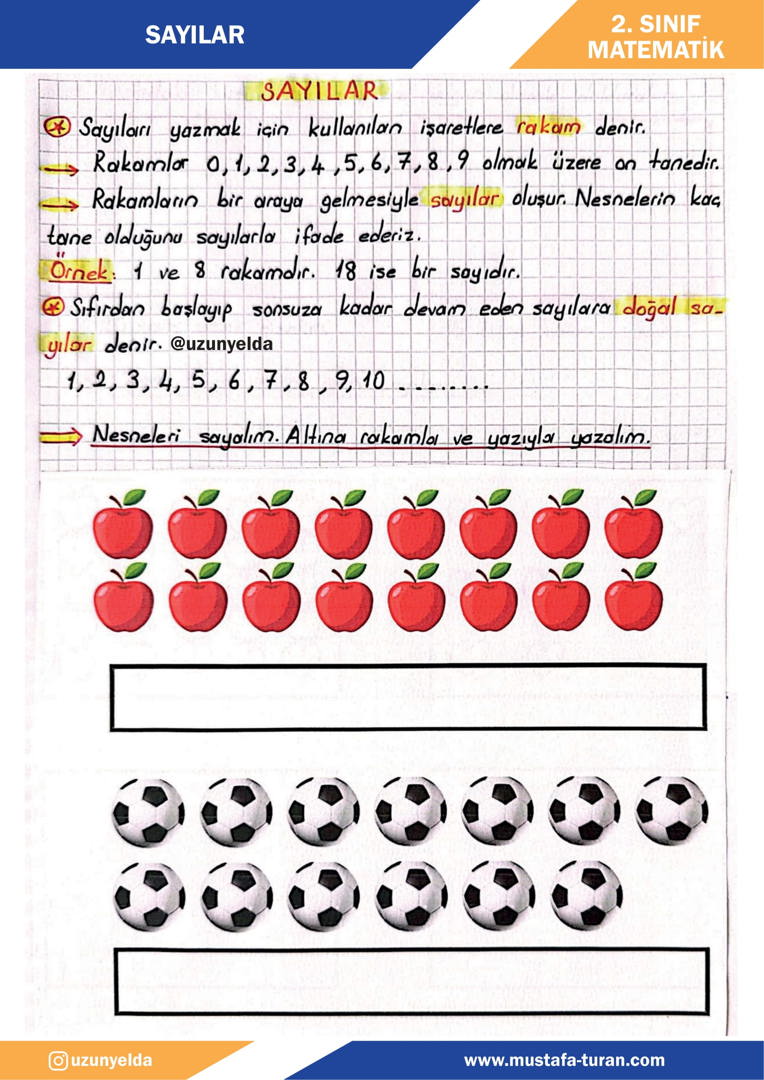 SAYILAR
2. SINIF
MATEMATİK
SAYILAR
Sayıları yazmak için kullanılan işaretlere rakam denir.
→ Rakamlar 0,1,2,3,4,5,6,7,8,9 olmak üzere on tanedir.
→ Rakamların bir araya gelmesiyle sayılar oluşur. Nesnelerin kaç
tane olduğunu sayılarla ifade ederiz.
Örnek: 1 ve 8 rakamdır. 18 ise bir sayıdır.
Sıfırdan başlayıp sonsuza kadar devam eden sayılara doğal sa-
yılar denir. @uzunyelda
1, 2, 3, 4, 5, 6, 7, 8, 9, 10 ........
→ Nesneleri sayalım. Altına rakamla ve yazıyla yazalım.
uzunyelda
www.mustafa-turan.com